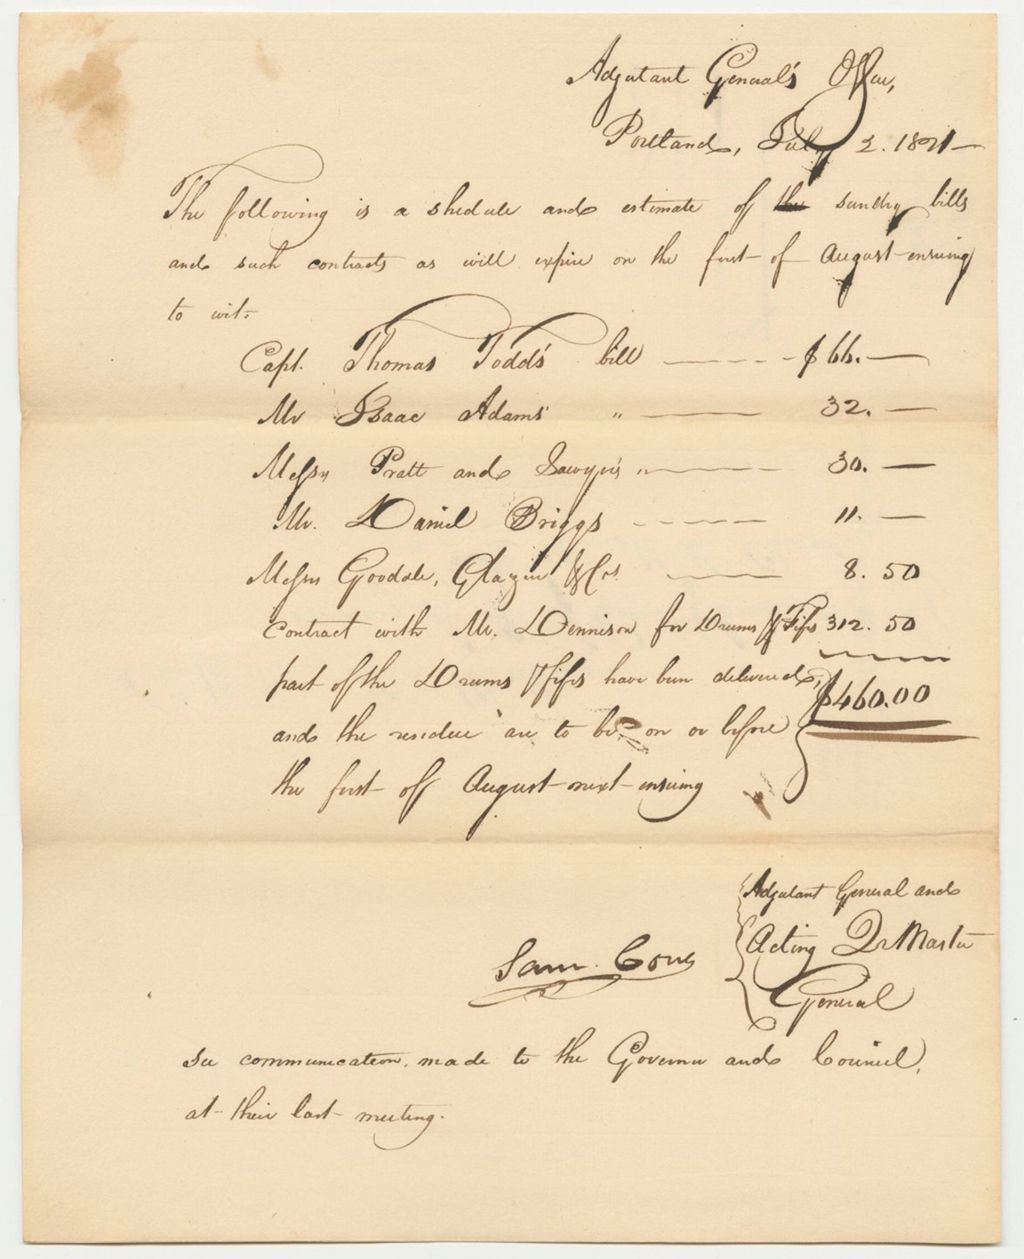 Adjutant General's Office,
Portland, July 2. 1821—
The following is a shedule and estimate of the sundry bills
and such contracts as will expire on the first of August ensuing
to wit.
Capt. Thomas Todd's bill — $66. —
Mr Isaac Adams' " — 32. —
Messrs Pratt and Sawyer's " — 30. —
Mr. Daniel Briggs — 11. —
Messrs Goodale, Glazier & Co's — 8. 50
Contract with Mr. Dennison for Drums & Fifes 312. 50
part of the Drums & fifes have been delivered,
$460.00
and the residue are to be on or before
the first of August next ensuing
Adjutant General and
Sam. Cony Acting Qr Master
General
see communication, made to the Governor and Council,
at their last meeting.